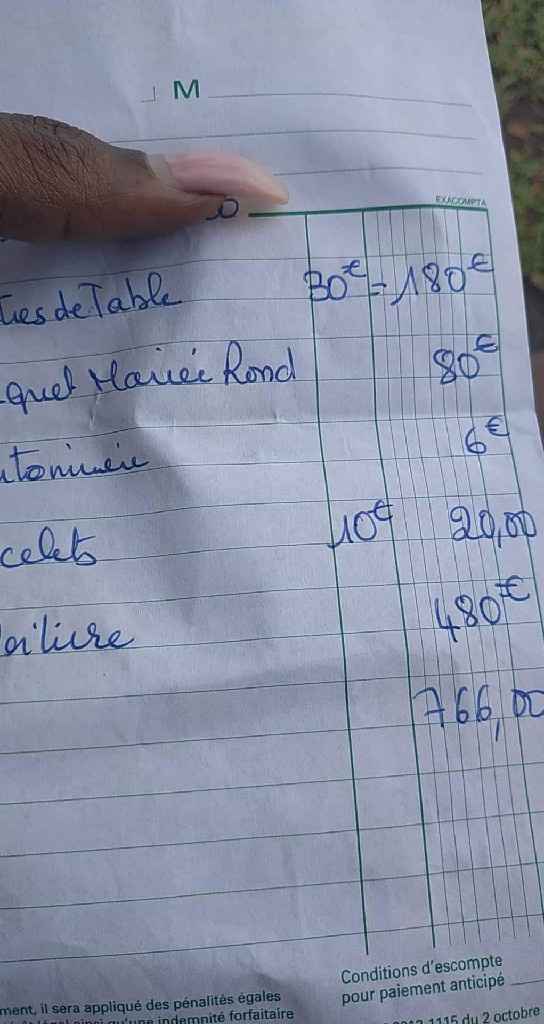 M
EXACOMPTA
de Table 30€ = 180€
Mariée Rond 80€
6€
10€ 20,00
480€
766,00
Conditions d'escompte
pour paiement anticipé
ment, il sera appliqué des pénalités égales
indemnité forfaitaire
1115 du 2 octobre